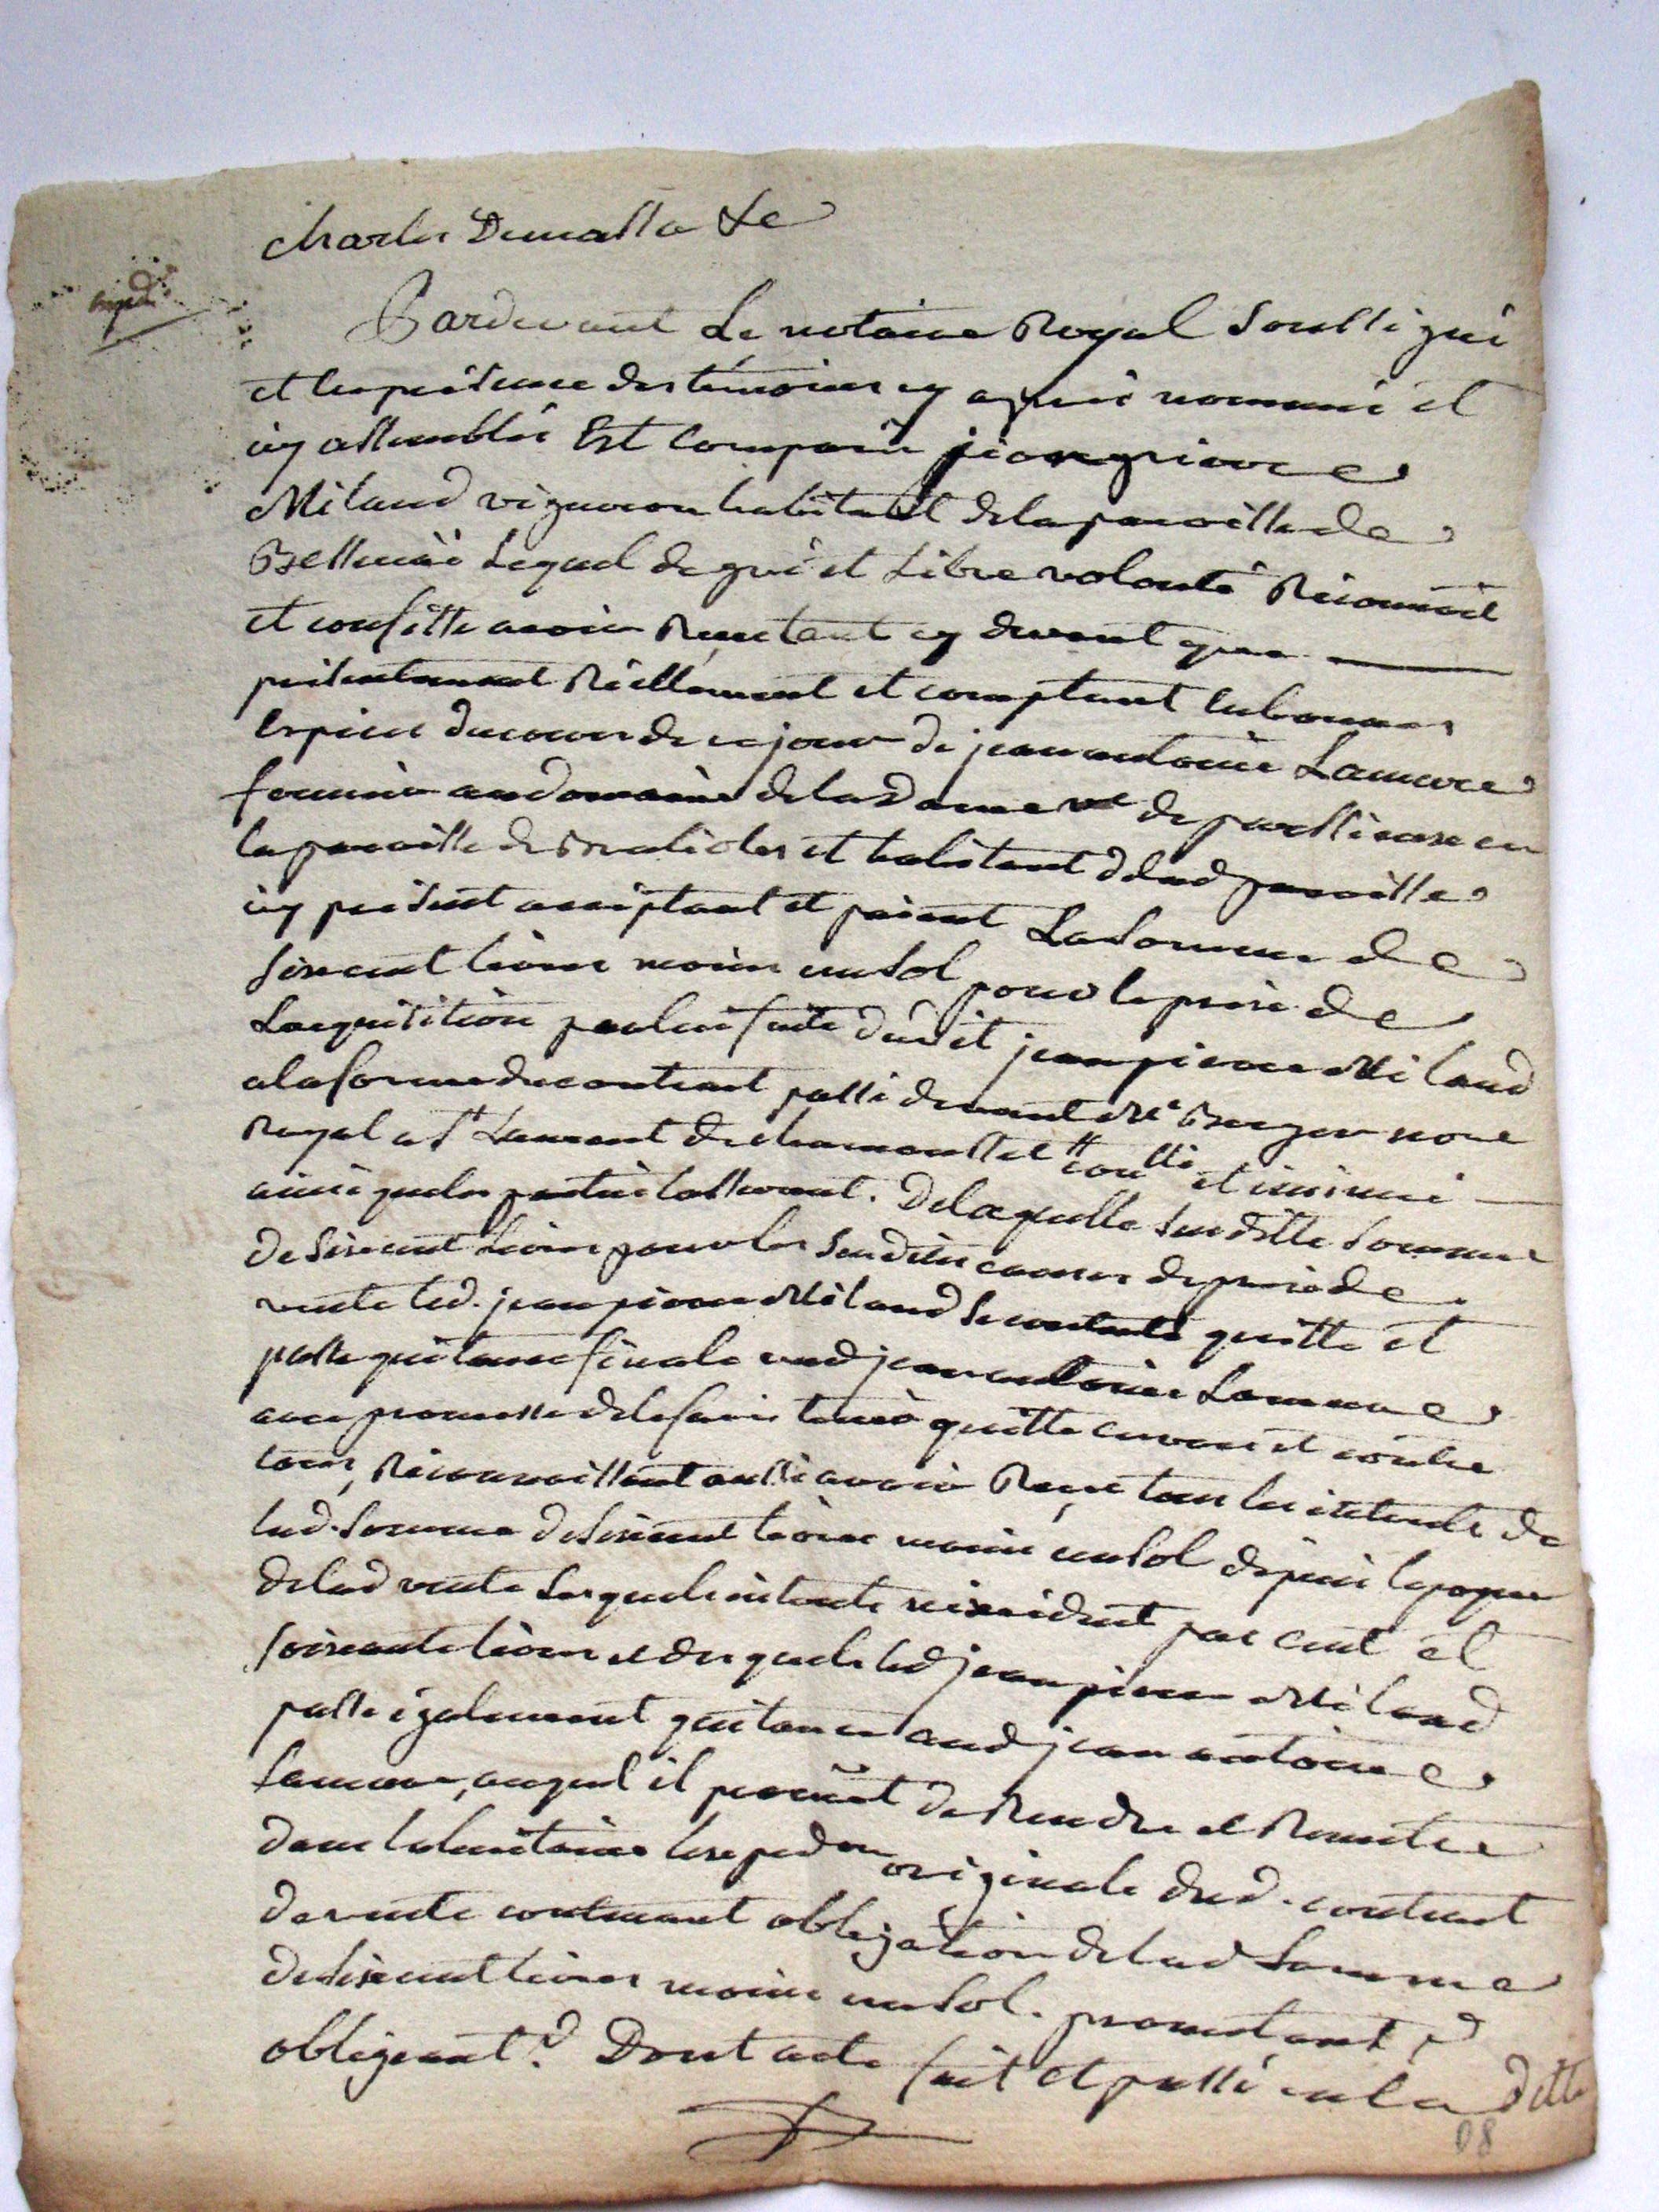 Charles Demassa Le
expd
Pardevant Le notaire Royal Soussigné
et en presence des témoins cy après nommé et
icy assemblés Est comparu jean pierre
Milaud vigneron habitant de la paroisse de
lequel de gré et Libre volonté Reconnoit
et confesse avoir Reçu tant cy devant que
presentement Reellement et comptant en bonnes
Especes ducours de ce jour de jean antoine Lamure
fermier au domaine de la Dame ve de en
la paroisse de et habitant delad paroisse
icy present acceptant et paient La Somme de
Sixcent livres moins un Sol pour le prix de
Lacquisition par lui faite dudit jean pierre Milaud
a la forme du contract passé devant Me Berger nore
Royal a St Laurent de chamousset et insinué
ainsi que les parties l'assurent. De laquelle Susditte Somme
de Sixcent Livres pour les Susdites causes de prix de
vente led. jean pierre Milaud Se contente quitte et
passe quitance finale aud jean antoine Lamure
avec promesse de le faire tenir quitte envers et contre
tous, Reconnoissant aussi avoir Reçu tous les interets de
lad. Somme de Sixcent livres moins un Sol depuis lepoque
delad vente Lesquels interets reviennent par cent et
soixante livres et desquels led jean pierre Milaud
passe également quitance aud jean antoine
Lamure, auquel il promet de Rendre et Remettre
dans la huitaine lexpedon originale dud. contract
de vente contenant obligation de lad Somme
de Sixcent livres moins un Sol. promettant &
obligeant & Dont acte fait et passé en la ditte
08